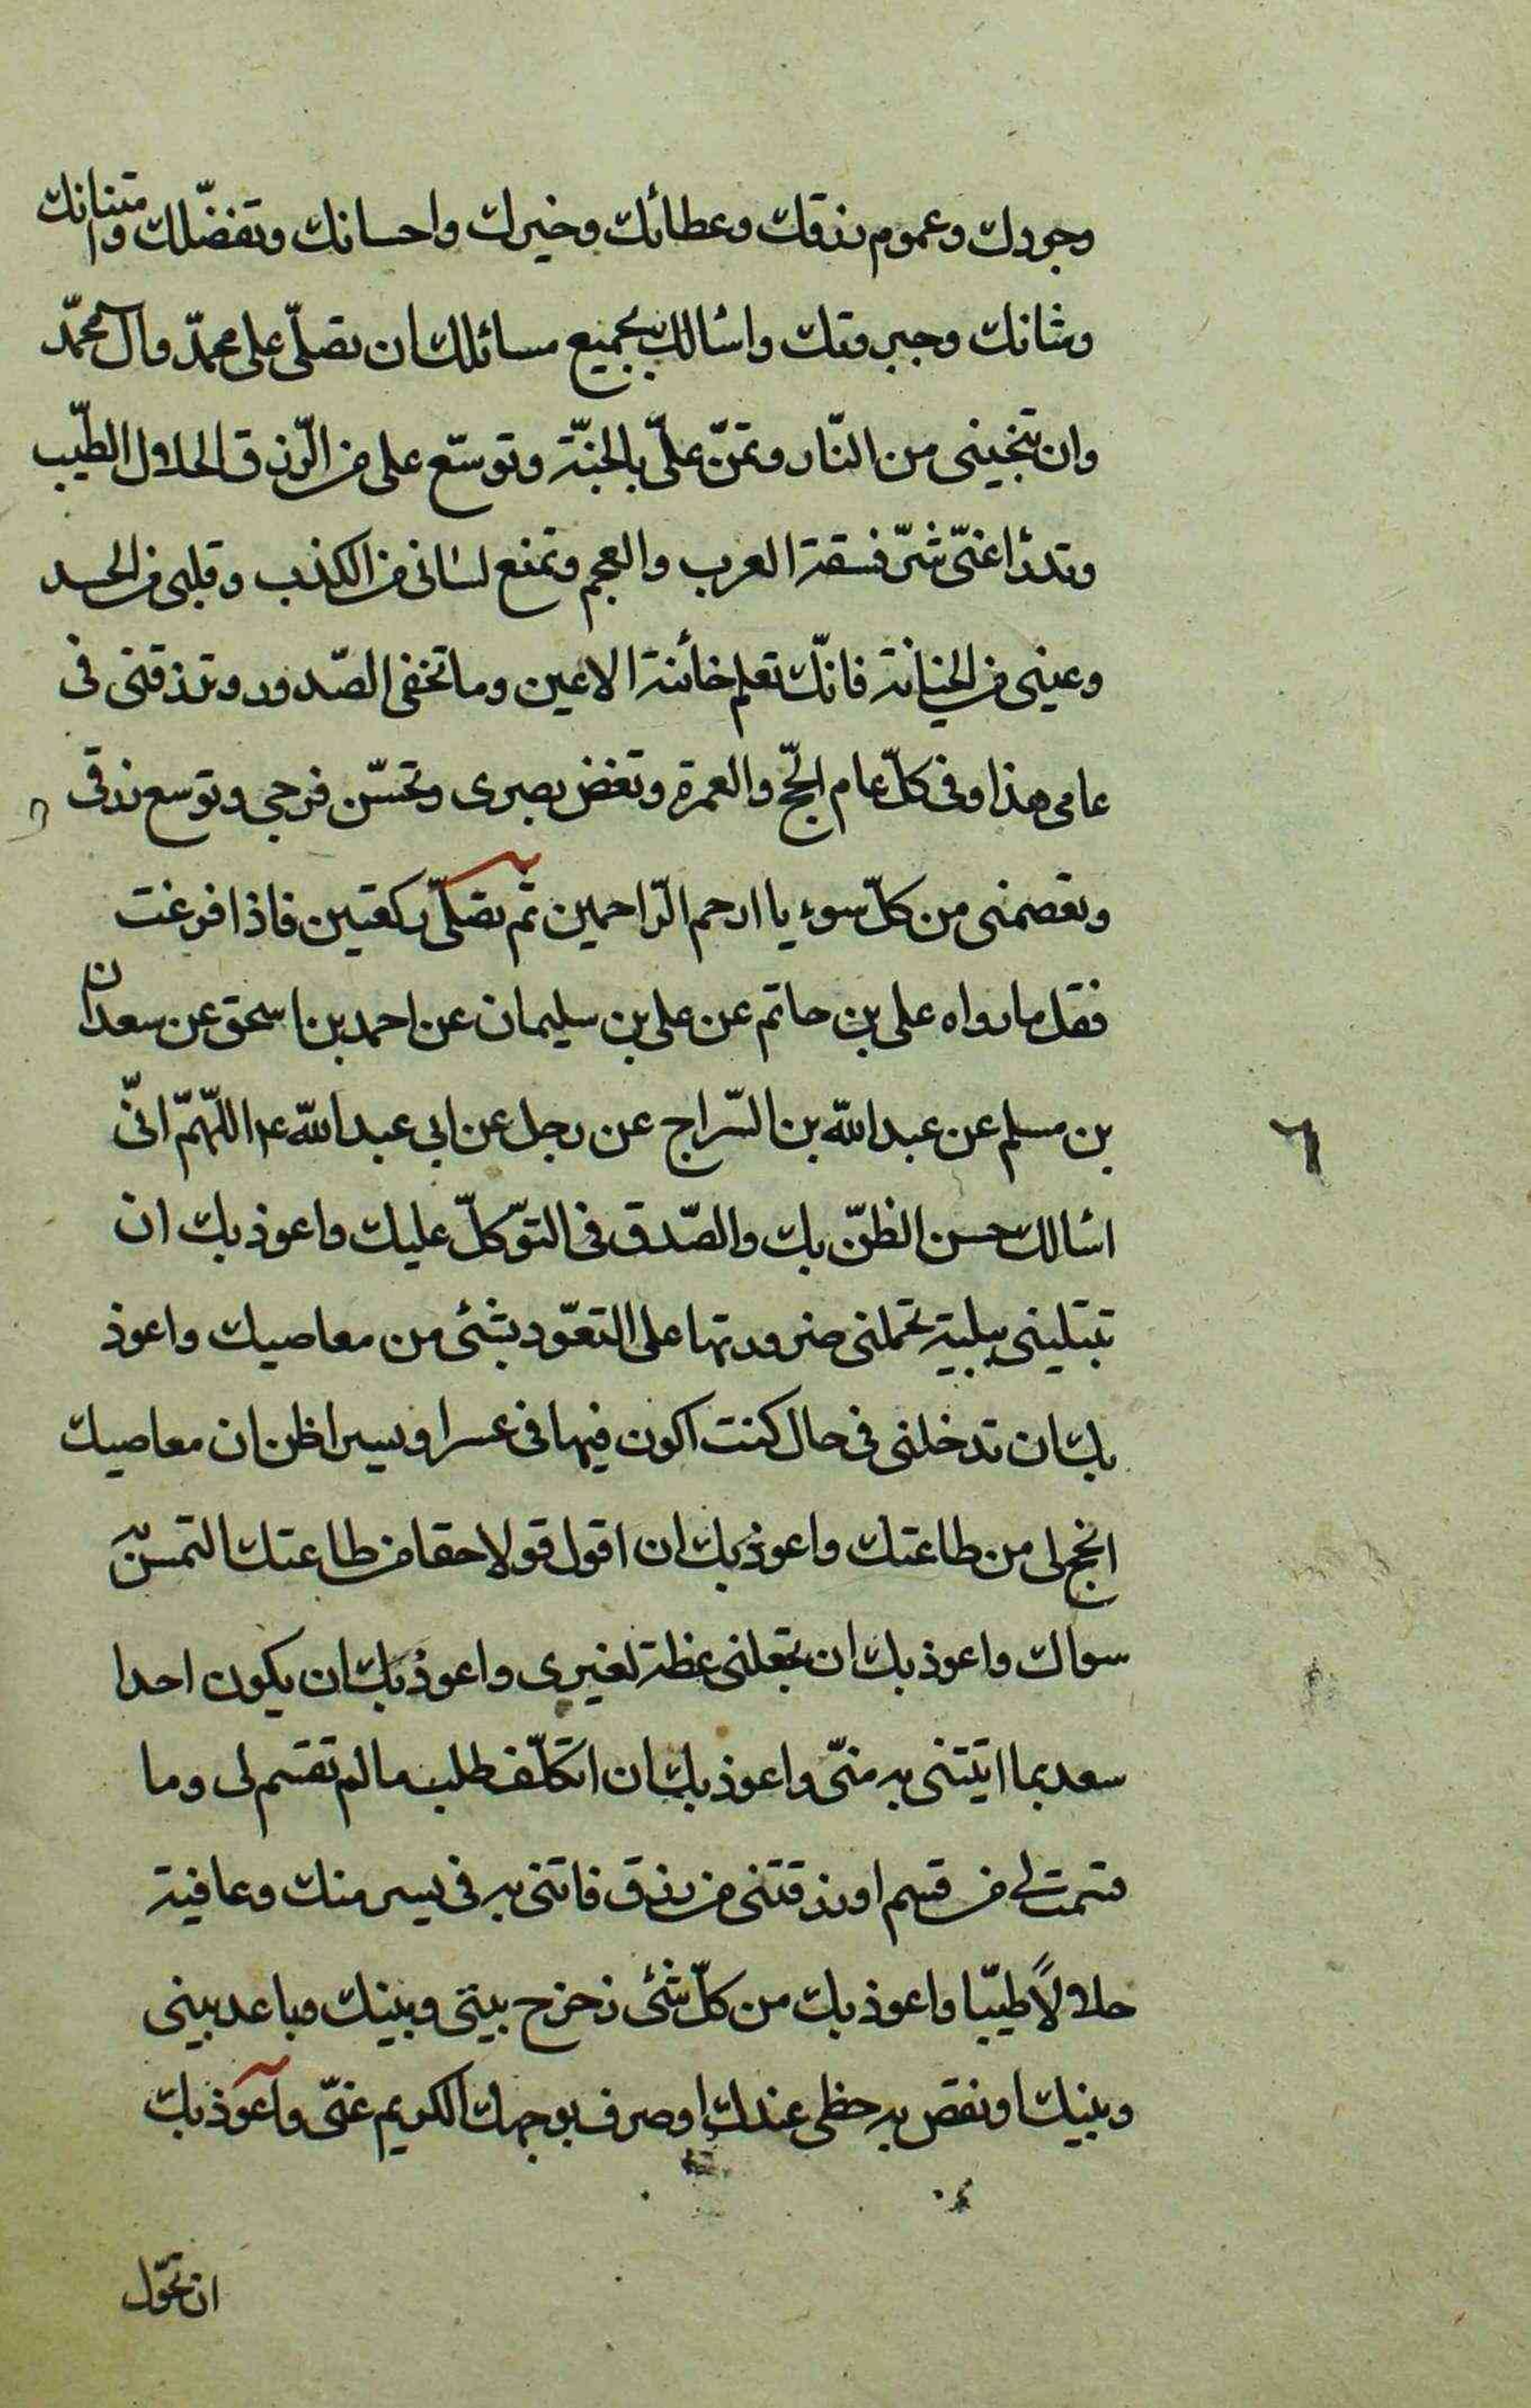 وجودك وعموم رزقك وعطائك وخيرك واحسانك وتفضّلك وامتنانك
وشانك وجبروتك واسٔالك بجميع مسائلك ان تصلّى على محمّد وآل محمّد
وان تنجينى من النّار وتمنّ علىّ بالجنّة وتوسّع على من الرّزق الحلال الطّيب
وتدرٔا عنّى شرّ فسقة العرب والعجم وتمنع لسانى من الكذب وقلبى من الحسد
وعينى من الخيانة فانّك تعلم خائنة الاعين وما تخفى الصّدور وترزقنى فى
عامى هذا وفى كلّ عام الحّج والعمرة وتغض بصرى وتحسّن فرجى وتوسع رزقى
وتعصمنى من كلّ سوء يا ارحم الرّاحمين ثم تصلّى ركعتين فاذا فرغت
فقل ما رواه على بن حاتم عن على بن سليمان عن احمد بن اسحق عن سعدان
بن مسلم عن عبد الله بن السّراج عن رجل عن ابى عبد الله ع م اللّهمّ انّى
اسٔالك حسن الظنّ بك والصّدق فى التوّكلّ عليك واعوذ بك ان
تبتلينى ببلية تحملنى ضرورتها على التعّود بشئ من معاصيك واعوذ
بك ان تدخلنى فى حال كنت اكون فيها فى عسر او يسر اظن ان معاصيك
انجح لى من طاعتك واعوذ بك ان اقول قولا حقا من طاعتك التمس به
سواك واعوذ بك ان تجعلنى عظة لغيرى واعوذ بك ان يكون احدا
سعد بما اتيتنى به منّى واعوذ بك ان اتكلّف طلب ما لم تقسم لى وما
قسمت لى من قسم او رزقتنى من رزق فاتنى به فى يسر منك وعافية
حلالاً طيّبا واعوذ بك من كلّ شئ زحزح بينى وبينك وباعد بينى
وبينك او نقص به حظى عندك او صرف بوجهك الكريم عنّى واعوذ بك
ان تحوّل